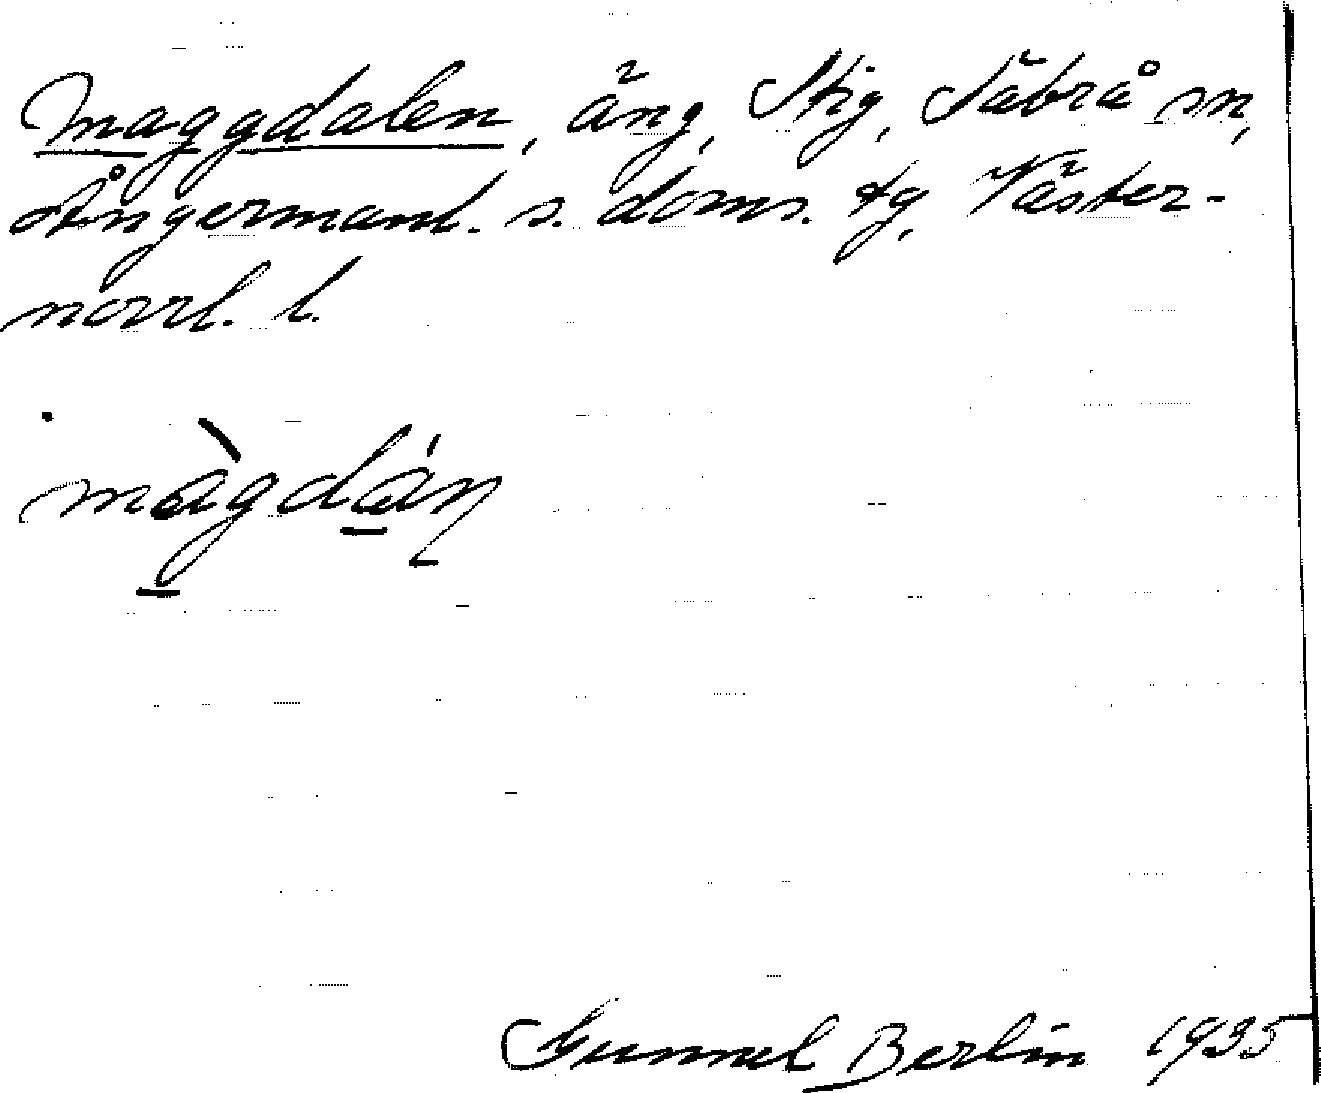 Maggdalen, äng, Stig, Säbrå sn,
Ångermanl. s. doms. tg, Väster-
norrl. l.
màgdáṇ
Gunnel Berlin 1935